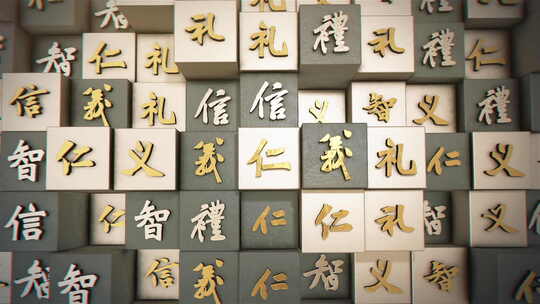 智
智仁礼礼礼禮礼禮仁
信義礼信信义智义禮
智仁义義仁義礼仁义
信仁智禮仁仁礼智义
智智信義仁智义信